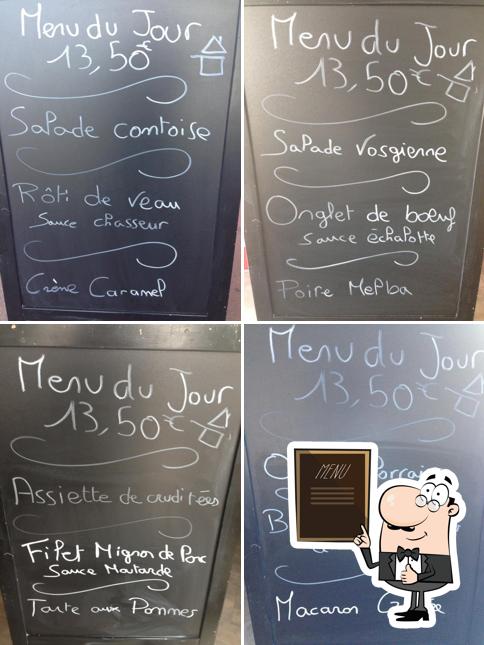 Menu du Jour
13,50€
Salade comtoise
Rôti de veau
Sauce chasseur
Crème Caramel
Menu du Jour
13,50€
Salade Vosgienne
Onglet de bœuf
sauce échalotte
Poire Melba
Menu du Jour
13,50€
Assiette de cruditées
Filet Mignon de Porc
Sauce Moutarde
Tarte aux Pommes
Menu du Jour
13,50€
MENU
Macaron